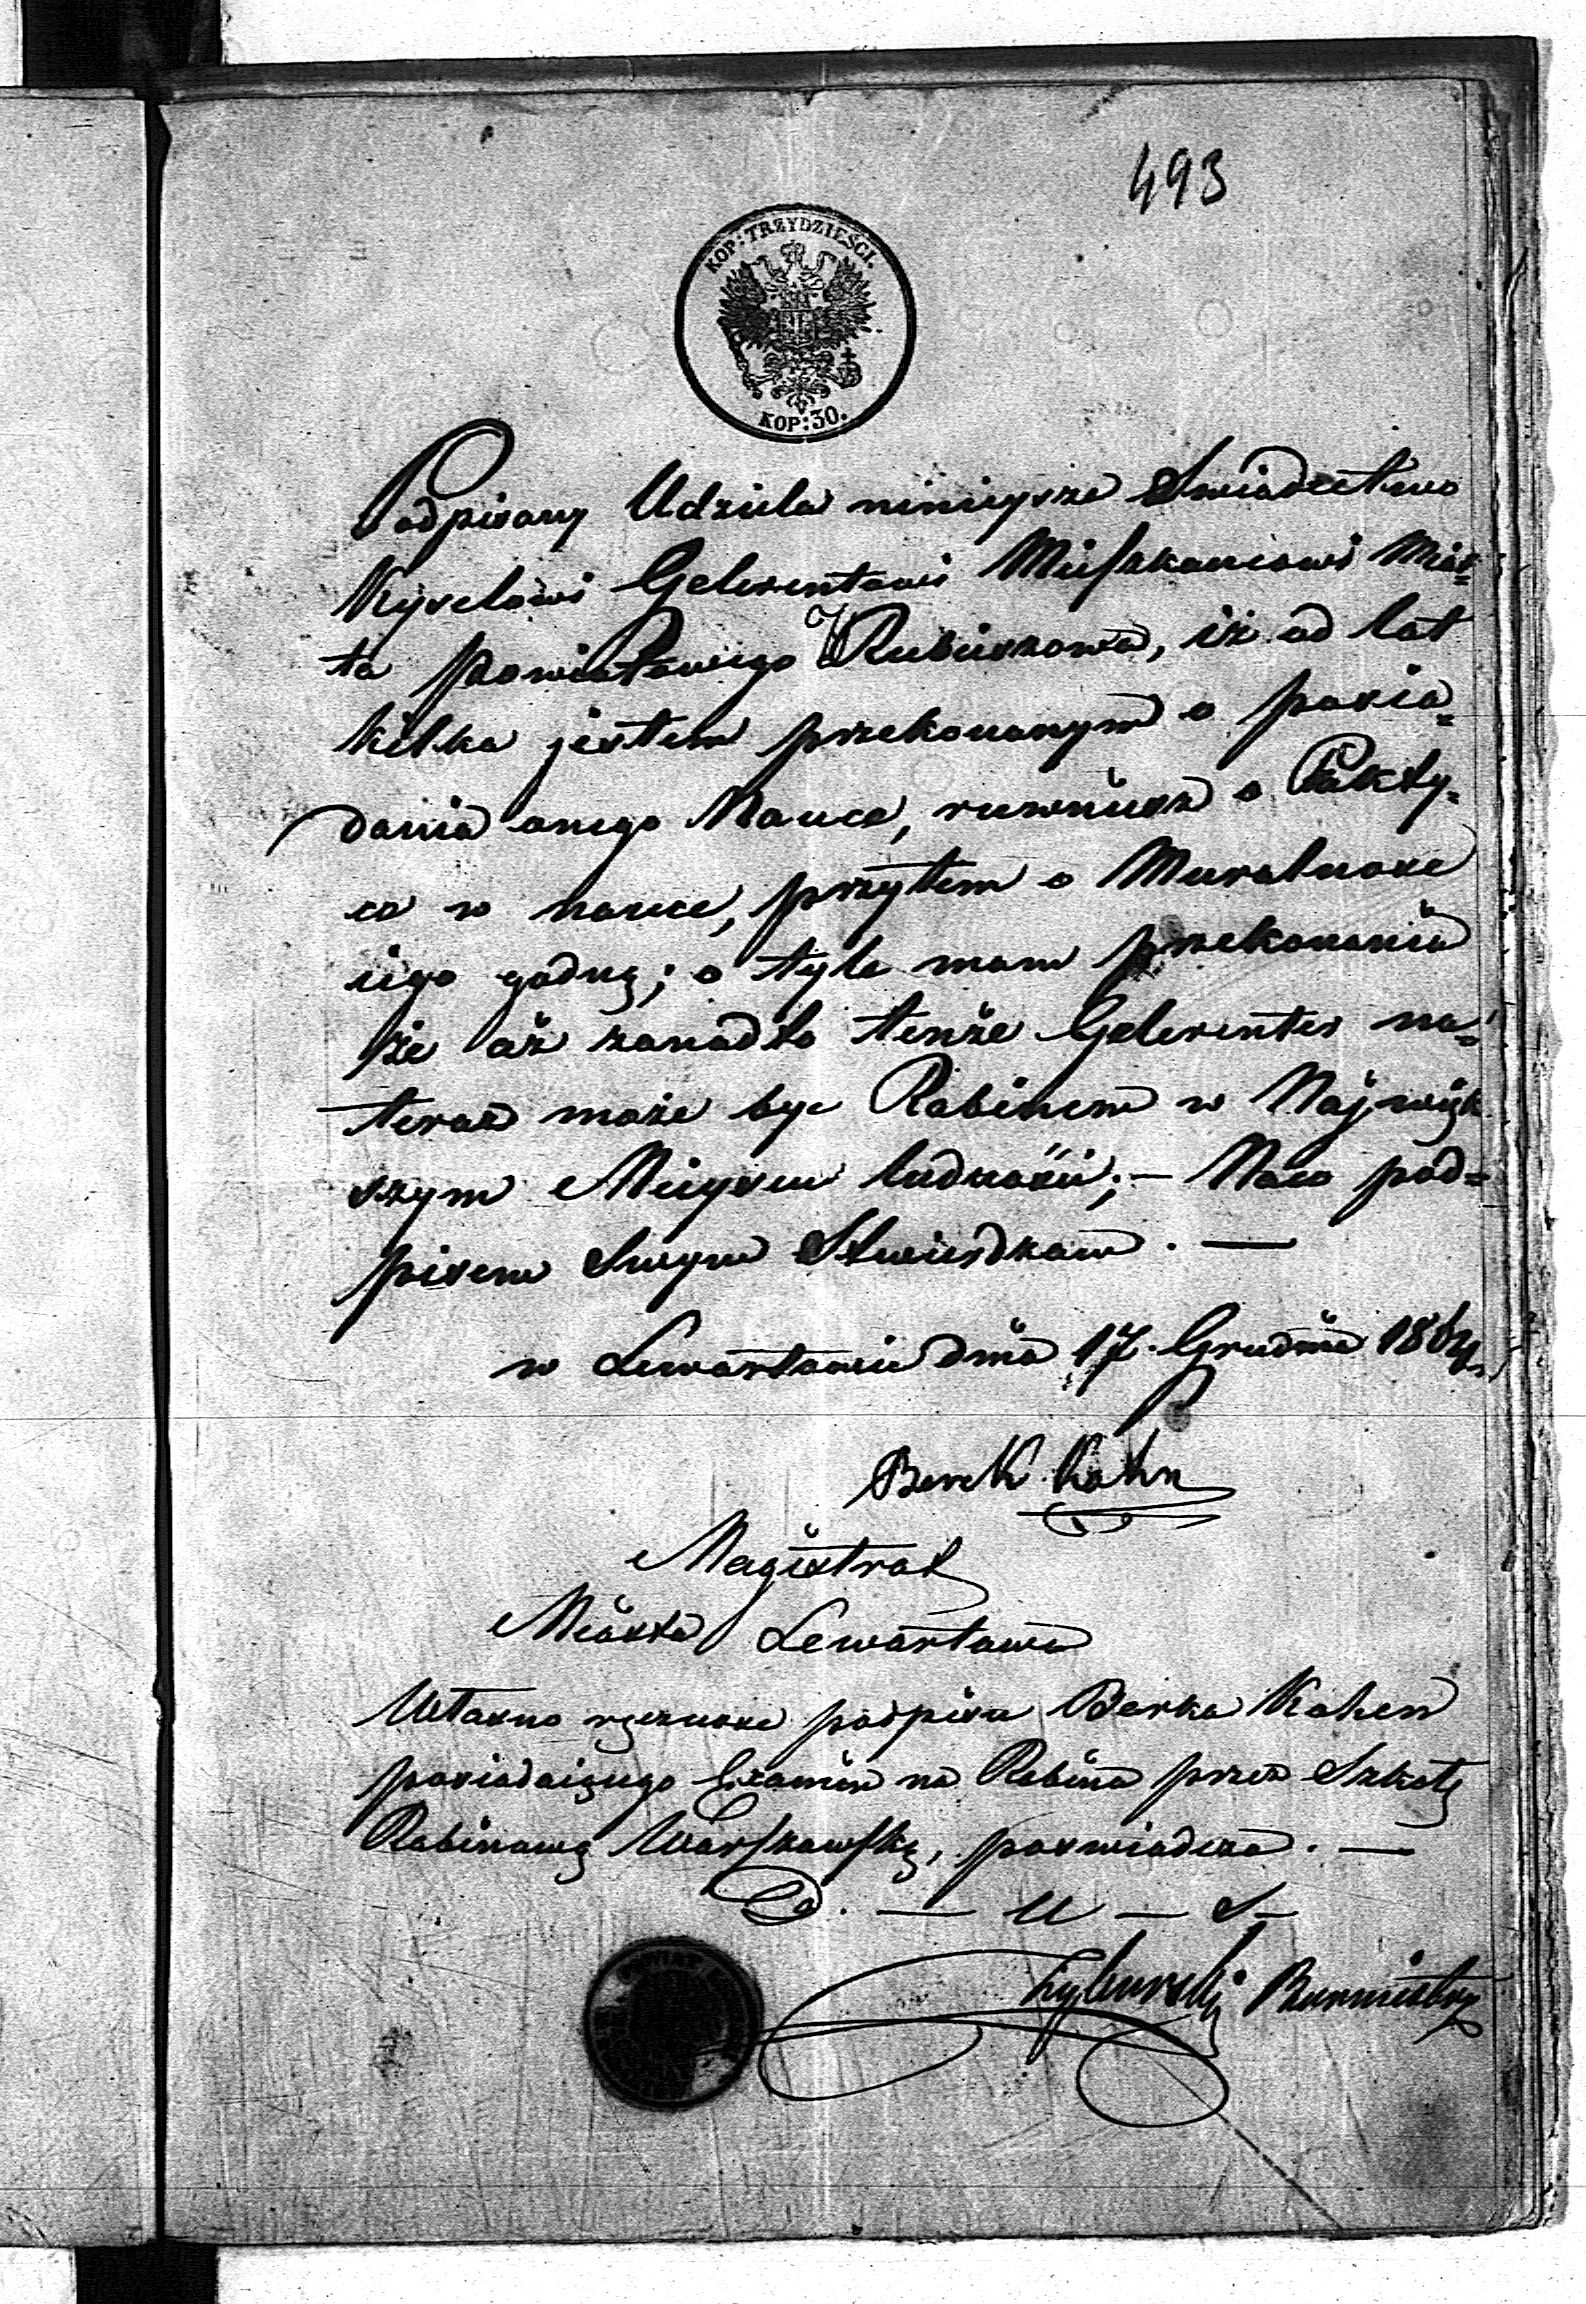 493
KOP: TRZYDZIEŚCI.
KOP: 30.
Podpisany Udziela niniejsze Swiadectwo
Kyselowi Gelerentowi Mieszkancowi Mias=
ta Powiatowego Hrubieszowa, iż od lat
kilka jestem przekonanym o posia=
dania onego Nauce, ruwnież o Prakty=
ce w nauce, przytem o Muralnosc
iego godną; o tyle mam przekonania
że aż zanadto tenże Gelerenter na=
teraz może byc Rabinem w Najwięk
szym Miejscu ludności; — Naco pod=
pisem Swym Stwierdzam. —
w Lewartowie dnia 17. Grudnia 1864
Berek Kohn
Magistrat
Miasta Lewartowa
Własno ręcznosc podpisu Berka Kohen
posiadaiącego Examin na Rabina przez Szkołę
Rabinową Warszawską, poswiadcza. —
D. — U — S —
Burmistrz